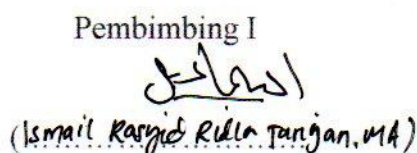 Pembimbing I
اسماعيل
(Ismail Rasyid Ridla Tarigan, MA)